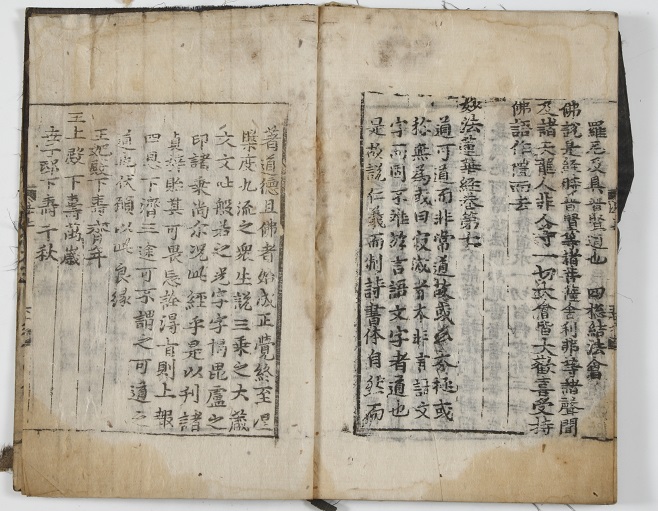 羅尼及具普賢道也 四摠結法會
佛說是經時普賢等諸菩薩舍利弗等諸聲聞
及諸天龍人非人等一切大會皆大歡喜受持
佛語作禮而去
妙法蓮華經卷第七
道可道而非常道故或名太極或
稱無爲或曰寂滅者本非言語文
字而固不離於言語文字者道也
是故說仁義而制詩書体自然而
著道德且佛者始成正覺終至
樂度九流之衆生說三乘之大藏
文文吐般若之光字字揭毘盧之
印諸乘尚尒况此經乎是以刊諸
貞梓貽其可畏忘詮得旨則上報
四恩下濟三途可不謂之可道之
道也伏願以此良緣
王妃殿下壽齊年
主上殿下壽萬歲
世子邸下壽千秋